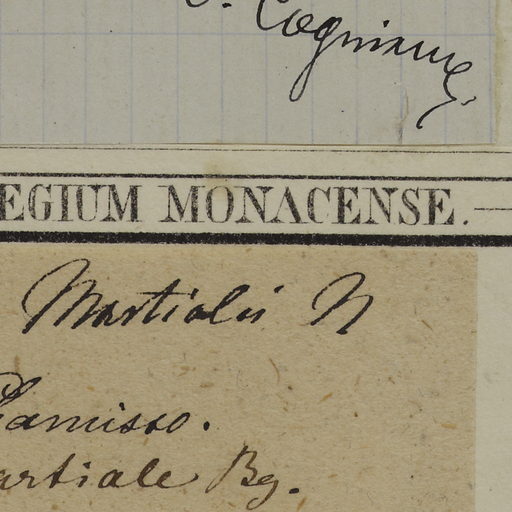 C. Cogniaux
EGIUM MONACENSE.
Martialis N
Chamisso.
artiale Bg.